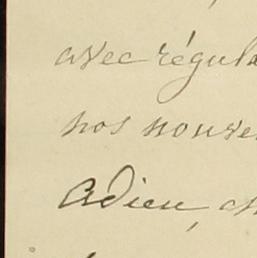 avec régula
nos nouve
Adieu, ch